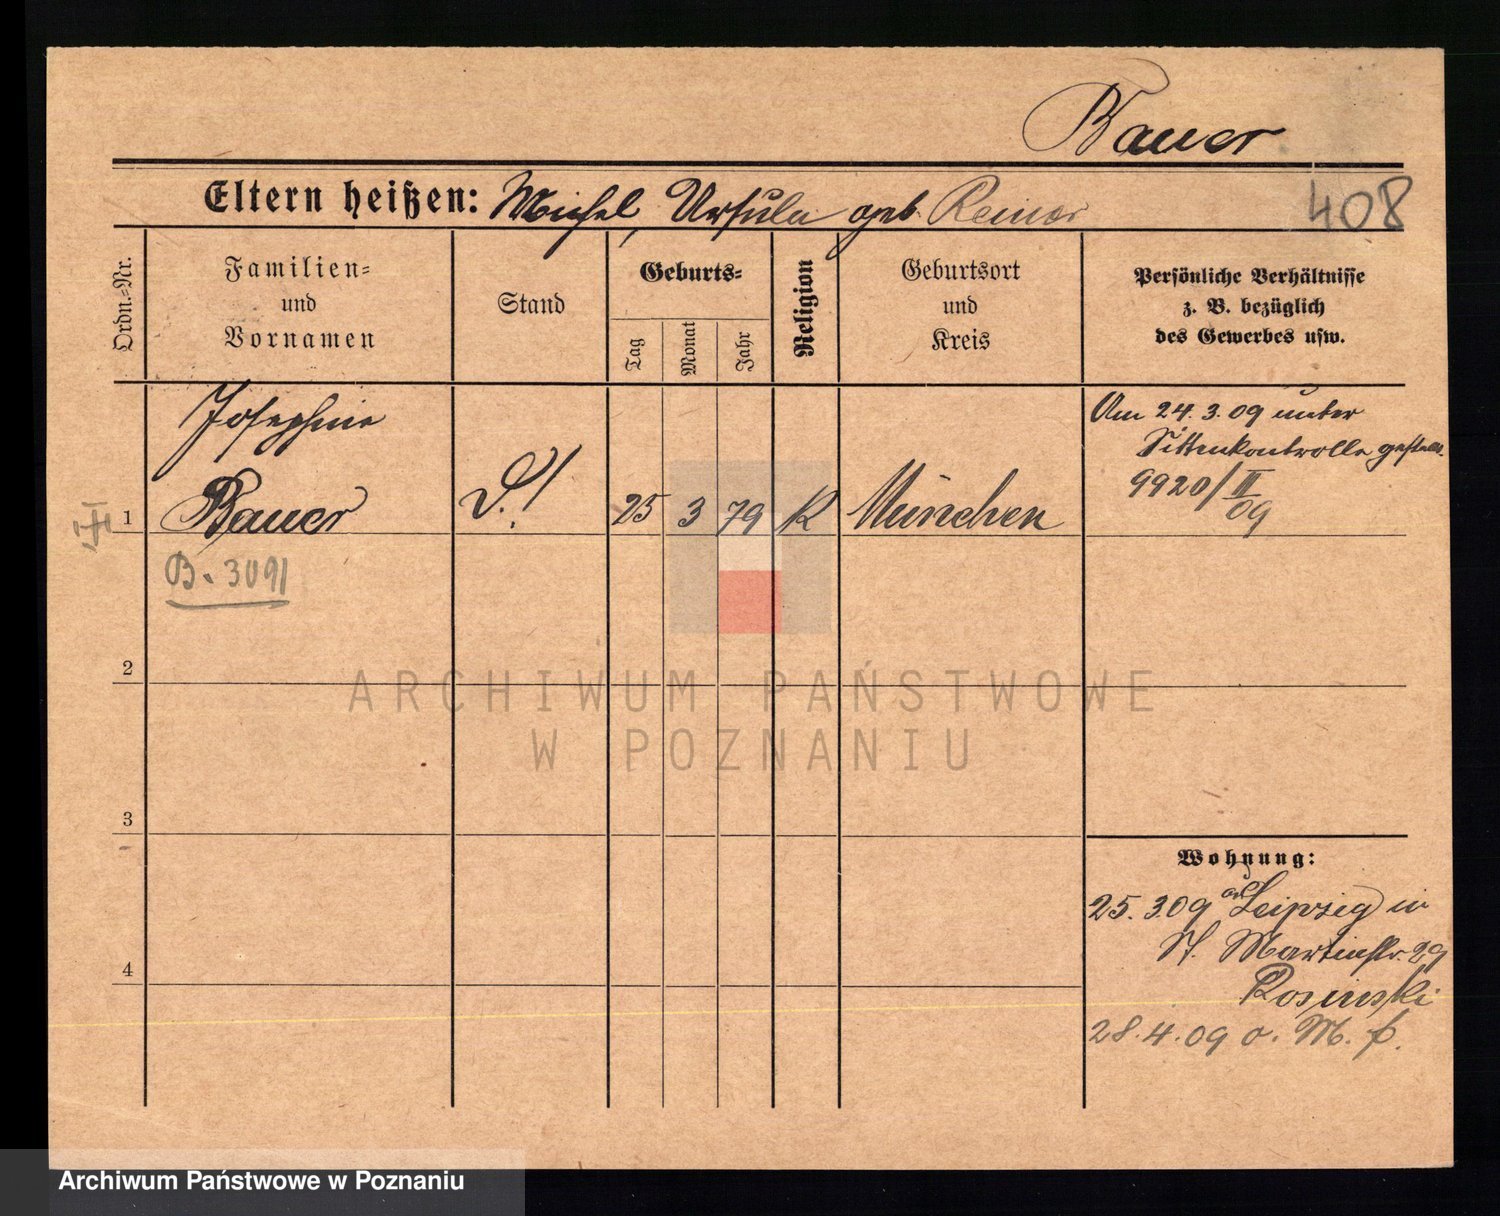 Bauer
Eltern heißen: Michel, Ursula geb. Reiner
408
Ordn.=Nr.
Familien=
und
Vornamen
Stand
Geburts=
Tag
Monat
Jahr
Religion
Geburtsort
und
Kreis
Persönliche Verhältnisse
z. B. bezüglich
des Gewerbes usw.
Josephine
Bauer
1
25 3 79 K München
Am 24. 3. 09 unter
Sittenkontrolle gestellt.
9920/II
09
B. 3091
2
3
4
Wohnung:
25. 3 09 Leipzig in
St. Martinstr. 29
Rosinski
28. 4. 09 o. M. f.
ARCHIWUM PAŃSTWOWE
W POZNANIU
Archiwum Państwowe w Poznaniu